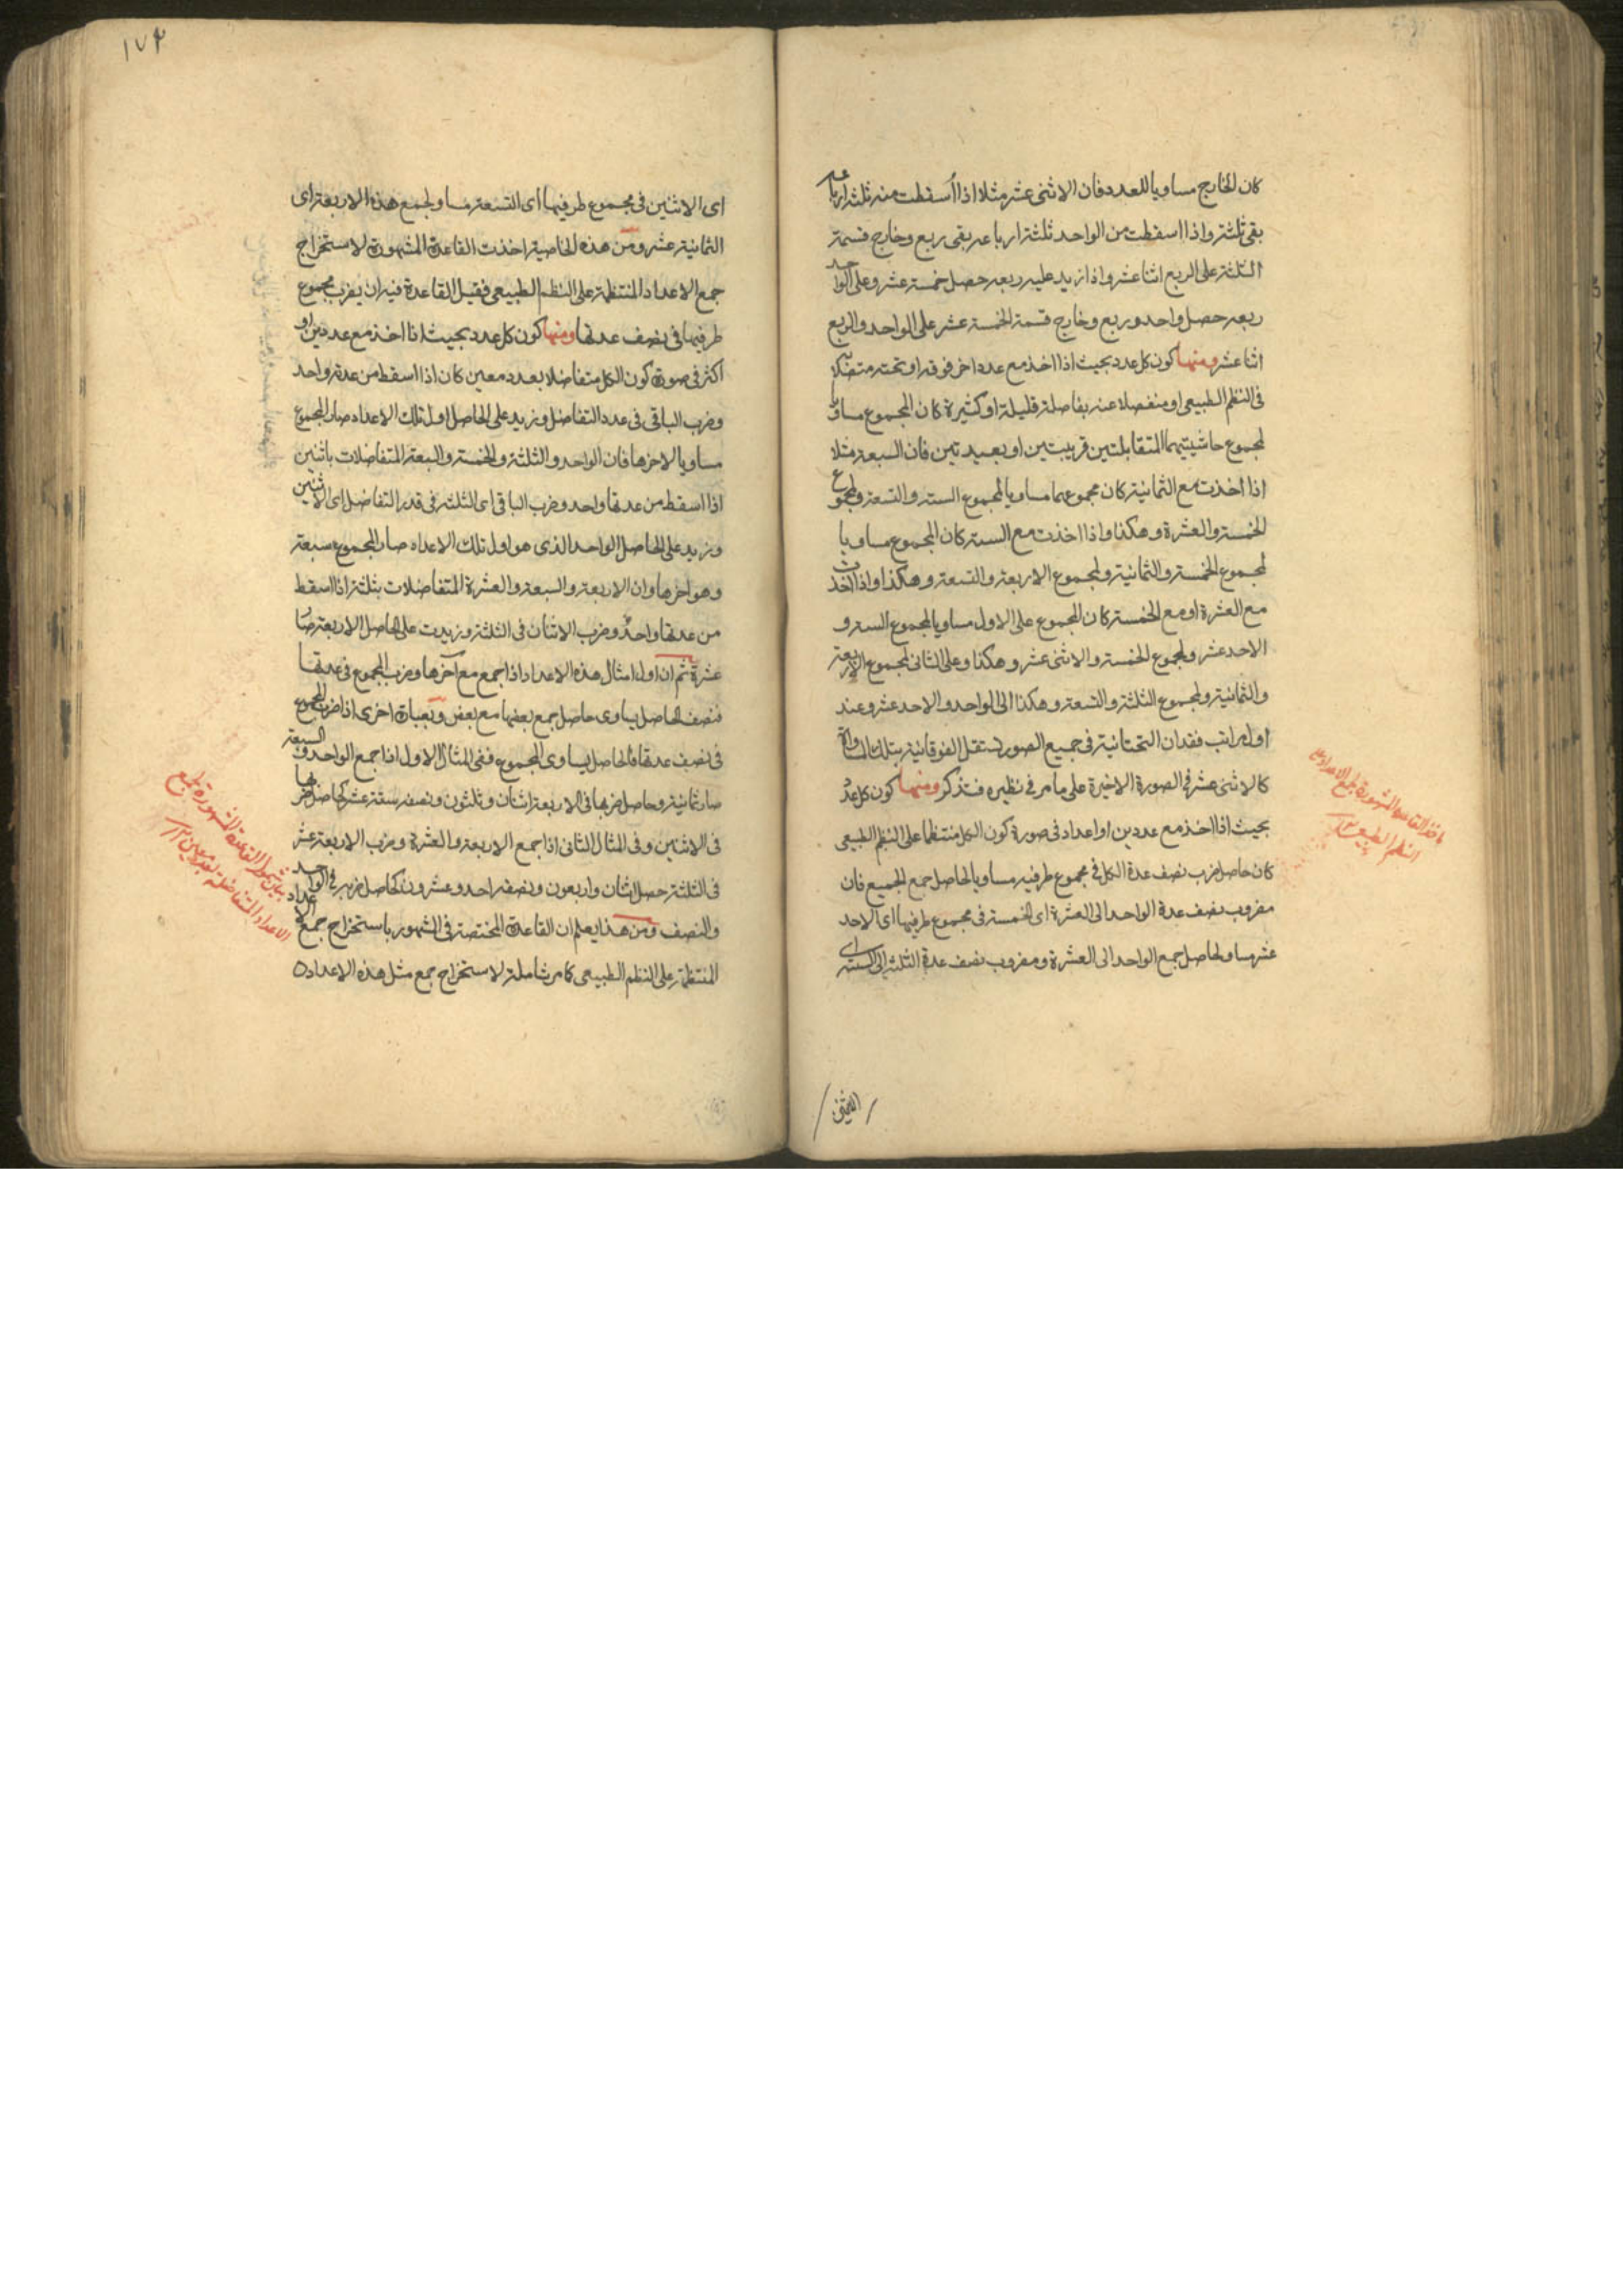 كان الخارج مساويا للعدد فان الاثنى عشر مثلا اذا اسقطت منه ثلثة ارباعه
بقى ثلثة واذا اسقطت من الواحد ثلثة ارباعه بقى ربع وخارج قسمة
الثلثة على الربع اثنا عشر واذا زيد عليه ربعه حصل خمسة عشر وعلى الواحد
ربعه حصل واحد وربع وخارج قسمة الخمسة عشر على الواحد والربع
اثنا عشر ومنها كون كل عدد بحيث اذا اخذ مع عدد اخر فوقه او تحته متصلا به
فى النظم الطبيعى او منفصلا عنه بفاصلة قليلة او كثيرة كان المجموع مساويا
لمجموع حاشيتيهما المتقابلتين قريبتين او بعيدتين فان السبعة مثلا
اذا اخذت مع الثمانية كان مجموعهما مساويا لمجموع الستة والتسعة ولمجموع
الخمسة والعشرة وهكذا واذا اخذت مع الستة كان المجموع مساويا
لمجموع الخمسة والثمانية ولمجموع الاربعة والتسعة وهكذا واذا اخذت
مع العشرة او مع الخمسة كان المجموع على الاول مساويا لمجموع الستة و
الاحد عشر ولمجموع الخمسة والاثنى عشر وهكذا وعلى الثانى لمجموع الاربعة
والثمانية ولمجموع الثلثة والتسعة وهكذا الى الواحد والاحد عشر وعند
اول مراتب فقدان التحتانية فى جميع الصور تستقل الفوقانية بتلك المساواة
كالاثنى عشر فى الصورة الاخيرة على ما مر فى نظيره فتذكر ومنها كون كل عدد
بحيث اذا اخذ مع عددين او اعداد فى صورة كون الكل منتظما على النظم الطبيعى
كان حاصل ضرب نصف عدة الكل فى مجموع طرفيه مساويا لحاصل جمع الجميع فان
مضروب نصف عدة الواحد الى العشرة اى الخمسة فى مجموع طرفيها اى الاحد
عشر مساو لحاصل جمع الواحد الى العشرة ومضروب نصف عدة الثلثة الى الستة اى
ماخذ القاعدة المشهورة لجمع الاعداد على
النظم الطبيعى
١٧٣
اى الاثنين فى مجموع طرفيها اى التسعة مساو لجمع هذه الاربعة اى
الثمانية عشر ومن هذه الخاصية اخذت القاعدة المشهورة لاستخراج
جمع الاعداد المنتظمة على النظم الطبيعى فقيل القاعدة فيه ان يضرب مجموع
طرفيها فى نصف عدتها ومنها كون كل عدد بحيث اذا اخذ مع عددين او
اكثر فى صورة كون الكل متفاضلا بعدد معين كان اذا اسقط من عدته واحد
وضرب الباقى فى عدد التفاضل وزيد على الحاصل اول تلك الاعداد صار المجموع
مساويا لاخرها فان الواحد والثلثة والخمسة والسبعة المتفاضلات باثنين
اذا اسقط من عدتها واحد وضرب الباقى اى الثلثة فى قدر التفاضل اى الاثنين
وزيد على الحاصل الواحد الذى هو اول تلك الاعداد صار المجموع سبعة
وهو اخرها وان الاربعة والسبعة والعشرة المتفاضلات بثلثة اذا اسقط
من عدتها واحد وضرب الاثنان فى الثلثة وزيدت على الحاصل الاربعة صار
عشرة ثم ان اول امثال هذه الاعداد اذا جمع مع آخرها وضرب المجموع فى عدتها
فنصف الحاصل يساوى حاصل جمع بعضها مع بعض وبعبارة اخرى اذا ضرب المجموع
فى نصف عدتها فالحاصل يساوى المجموع ففى المثال الاول اذا جمع الواحد والسبعة
صار ثمانية وحاصل ضربها فى الاربعة اثنان وثلثون ونصفه ستة عشر كحاصل ضربها
فى الاثنين وفى المثال الثانى اذا جمع الاربعة والعشرة وضرب الاربعة عشر
فى الثلثة حصل اثنان واربعون ونصفه احد وعشرون كحاصل ضربه فى الواحد
والنصف ومن هذا يعلم ان القاعدة المختصة فى الشهور باستخراج جمع الاعداد
المنتظمة على النظم الطبيعى كامر شاملة لاستخراج جمع مثل هذه الاعداد
بيان شمول القاعدة المشهورة لجمع
الاعداد المتفاضلة بعدد معين